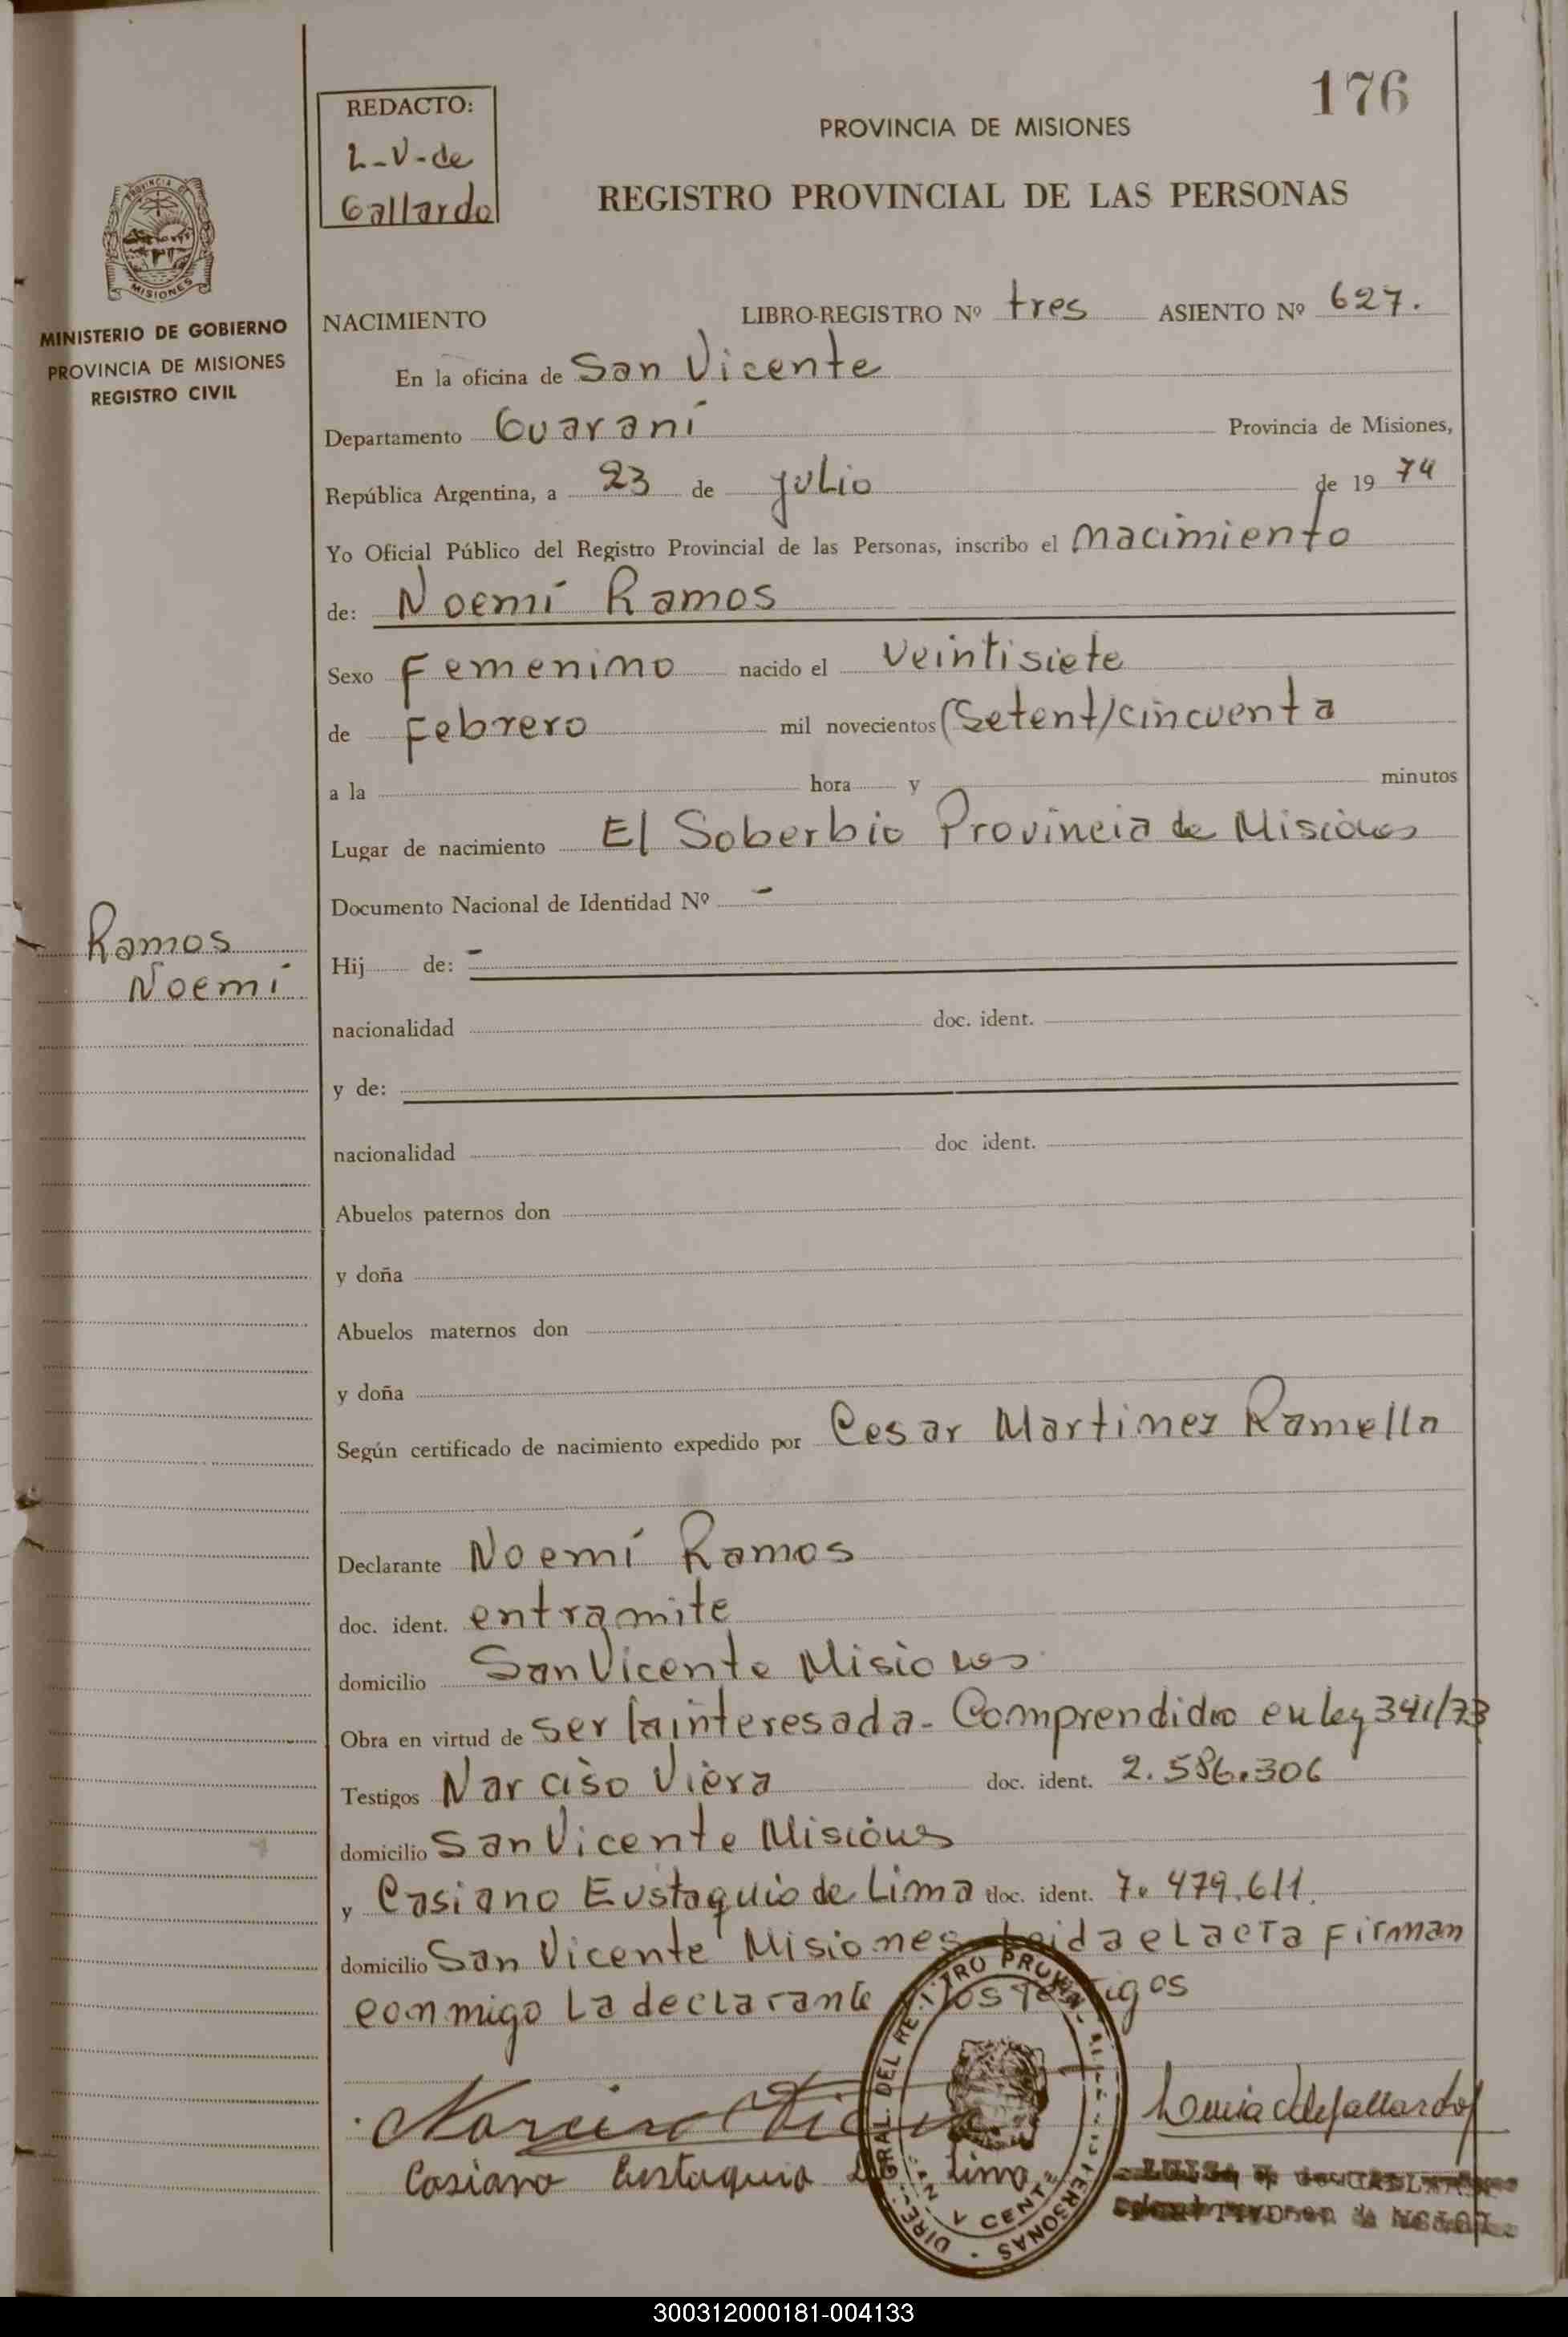 176
REDACTO:
L-V-de
Gallardo
PROVINCIA DE MISIONES
REGISTRO PROVINCIAL DE LAS PERSONAS
PROVINCIA DE
MISIONES
MINISTERIO DE GOBIERNO
PROVINCIA DE MISIONES
REGISTRO CIVIL
NACIMIENTO LIBRO-REGISTRO Nº tres ASIENTO Nº 627.
En la oficina de San Vicente
Departamento Guaraní Provincia de Misiones,
República Argentina, a 23 de julio de 19 74
Yo Oficial Público del Registro Provincial de las Personas, inscribo el nacimiento
de: Noemí Ramos
Sexo Femenino nacido el veintisiete
de Febrero mil novecientos (Setent/cincuenta
a la hora y minutos
Lugar de nacimiento El Soberbio Provincia de Misiones
Documento Nacional de Identidad Nº -
Ramos
Noemí
Hij de: -
nacionalidad doc. ident.
y de:
nacionalidad doc ident.
Abuelos paternos don
y doña
Abuelos maternos don
y doña
Según certificado de nacimiento expedido por Cesar Martinez Ramella
Declarante Noemí Ramos
doc. ident. entramite
domicilio San Vicente Misiones
Obra en virtud de ser la interesada - Comprendido en ley 341/73
Testigos Narciso Viera doc. ident. 2.586.306
domicilio San Vicente Misiones
y Casiano Eustaquio de Lima doc. ident. 7.479.611.
domicilio San Vicente Misiones Leida el acta firman
conmigo la declarante y los testigos
Casiano Eustaquio de Lima
300312000181-004133